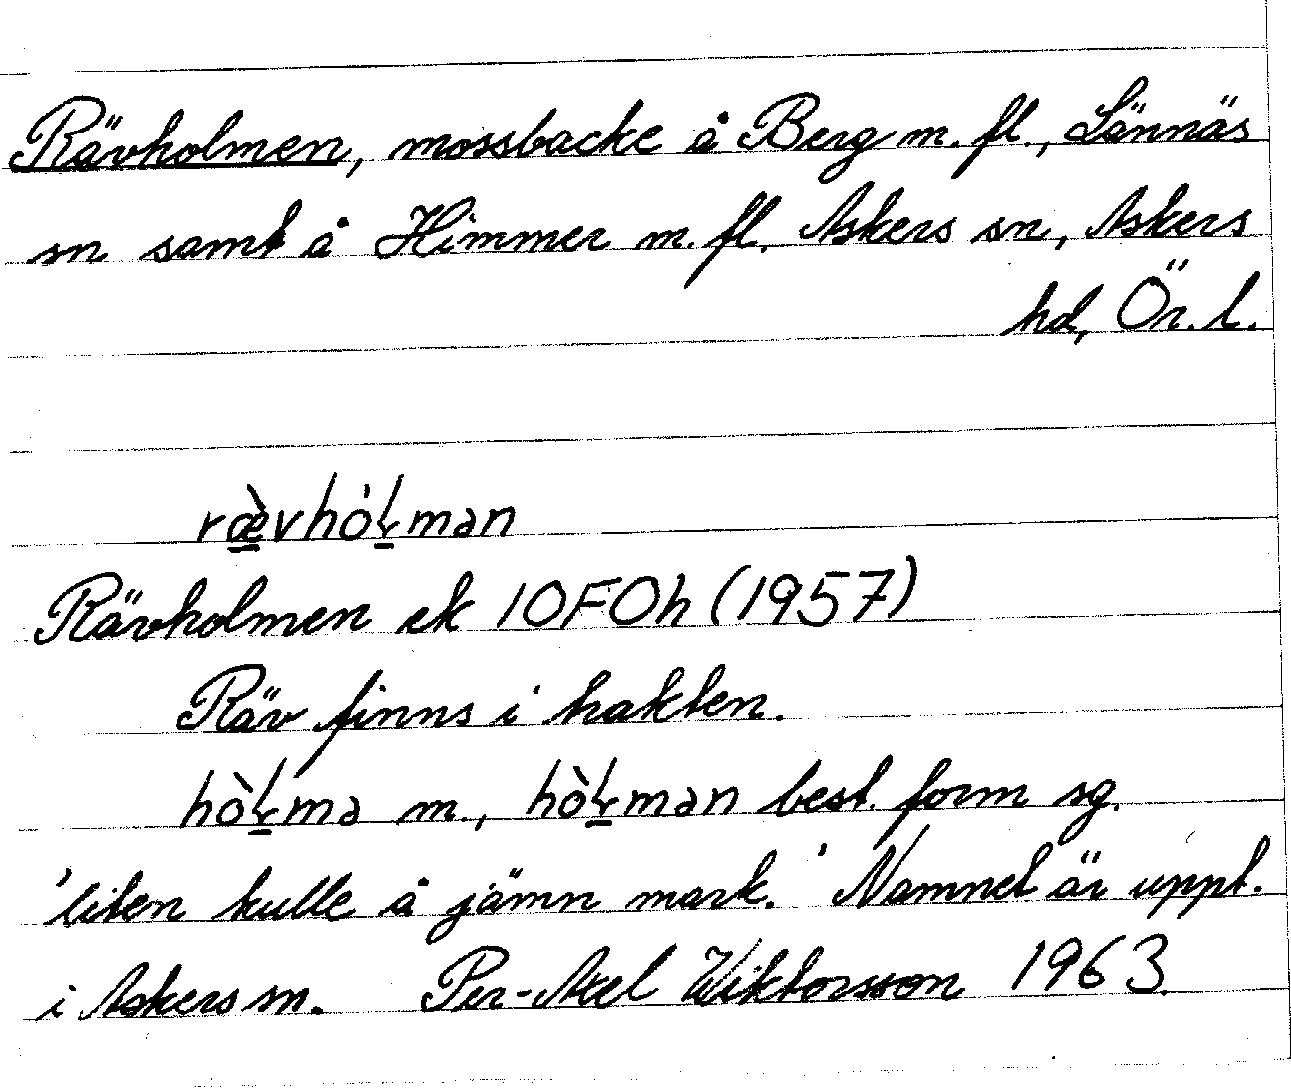 Rävholmen, mossbacke å Berg m. fl., Lännäs
sn samt å Himmer m. fl. Askers sn, Askers
hd, Ör. l.
ræ̀vhó̀ɬmən
Rävholmen ek 10F0h (1957)
Räv finns i trakten.
hòɬmə m., hòɬmən best. form sg.
'liten kulle å jämn mark.' Namnet är uppt.
i Askers sn. Per-Axel Wiktorsson 1963